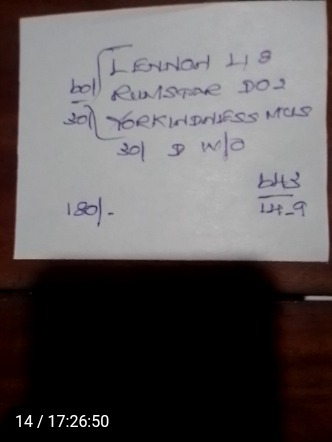 LENNON 48
60/ RUMSTAR DO2
30/ YORKINDNESS MUS
30/ D W/O
643
180/- 14-9
14 / 17:26:50